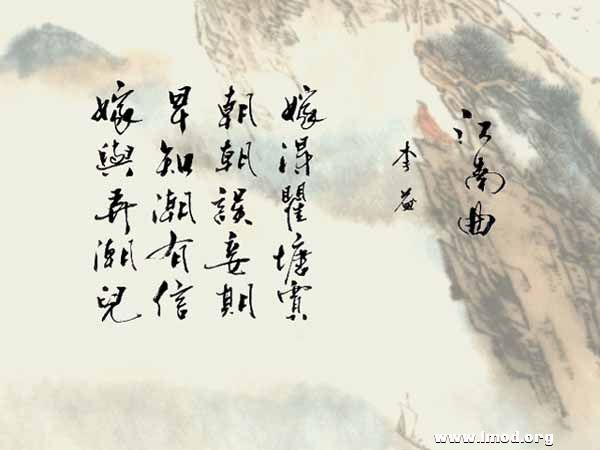 江南曲
李益
嫁得瞿塘賈
朝朝誤妾期
早知潮有信
嫁與弄潮兒
www.lmod.org